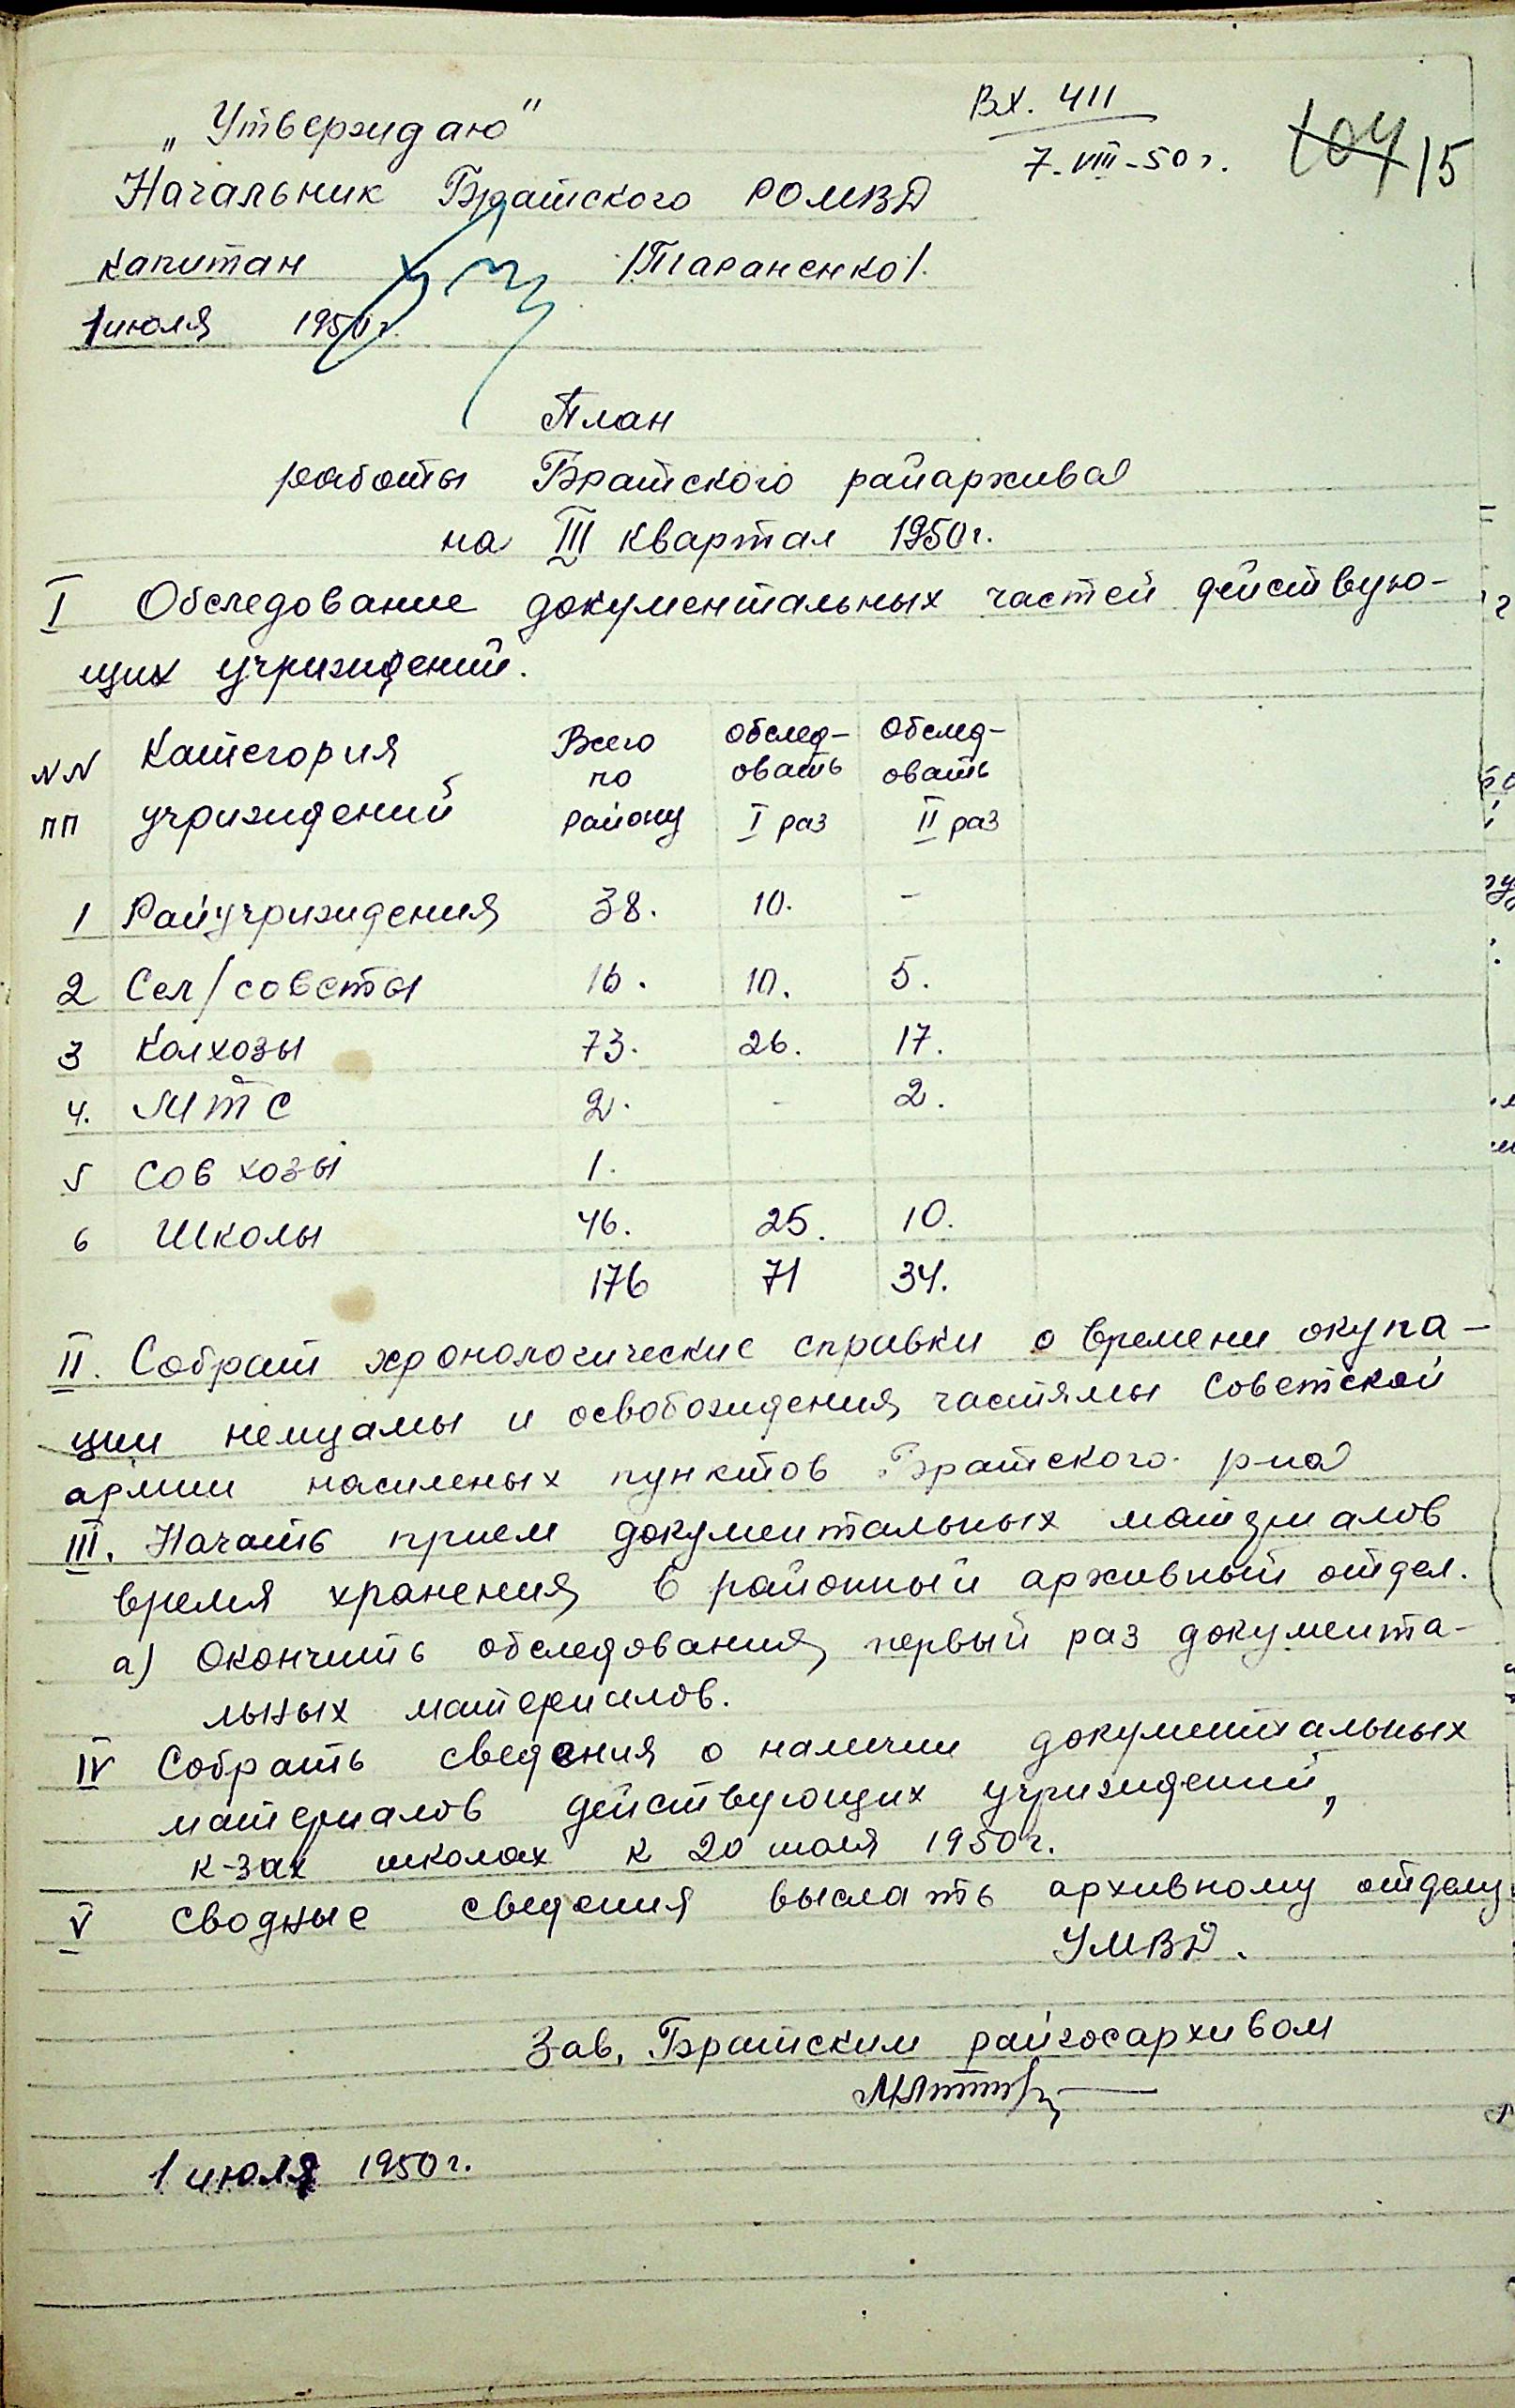 Вх. 411
7-VIII-50г.
104 15
„Утверждаю"
Начальник Братского РОМВД
капитан /Тараненко/.
1 июля 1950г.
План
работы Братского райархива
на III квартал 1950г.
I Обследование документальных частей действую-
щих учриждений.
NN пп Категория учриждений Всего по району Обслед-овать I раз Обслед-овать II раз
1 Райучриждения 38. 10. -
2 Сел/советы 16. 10. 5.
3 Колхозы 73. 26. 17.
4. МТС 2. - 2.
5 Совхозы 1.
6 Школы 46. 25. 10.
176 71 34.
II. Собрат хронологические справки о времени окупа-
ции немцамы и освобождения частямы Советской
армии населеных пунктов Братского р-на
III. Начать прием документальных материалов
время хранения в районный архивный отдел.
а) Окончить обследования первый раз документа-
льных материалов.
IV Собрать сведения о наличии документальных
материалов действующих учриждений,
к-зах школах к 20 июля 1950г.
V Сводные сведения выслать архивному отделу
УМВД.
Зав. Братским райгосархивом
1 июля 1950г.